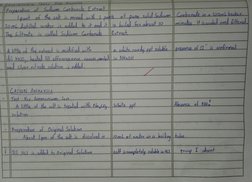 Preparation of Sodium Carbonate Extract
1 part of the salt is mixed with 2 parts of pure solid sodium
Carbonate in a 100mL beaker
Some distilled water is added to it and it is boiled for about 10
minutes. It
The filtrate is called Sodium Carbonate Extract
A little of the extract is acidified with
dil HNO3, heated till effervescence ceases
and silver nitrate solution is added.
A white curdy ppt soluble in NH4OH
presence of Cl⁻ is confirmed
CATION ANALYSIS
Test for Ammonium ion
A little of the salt is treated with Nessler's
solution.
White ppt
Absence of NH4⁺
Preparation of Original Solution
About 1 gm of the salt is dissolved in
water in a boiling tube
Dil HCl is added to Original Solution
Salt is completely soluble in HCl
group I absent